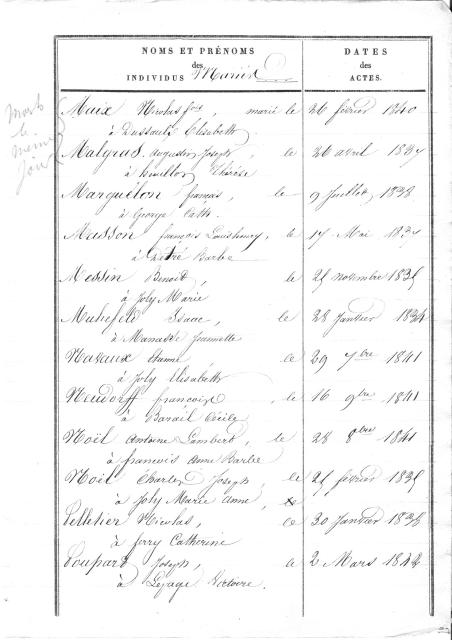 NOMS ET PRÉNOMS
des
INDIVIDUS Mariés
DATES
des
ACTES.
morts
le
même
jour
Maix Nicolas fois, marié le 26 février 1840
à Dussault Elisabeth
Malgras, Augustin Joseph, le 26 avril 1837
à Thérèse
Marguélon françois, le 9 Juillet, 1838
à George Cath.
Masson françois Louis henry, le 17 Mai 1837
à Barbe
Messin Benoit, le 25 novembre 1835
à Joly Marie
Isaac, le 28 Janvier 1834
à Jeannette
Navaux Etienne, le 29 7bre 1841
à Joly Elisabeth
Neudorff francois, le 16 9bre 1841
à Barail Cécile
Noil Antoine Lambert, le 28 8bre 1841
à francois Anne Barbe
Noil Charles Joseph, le 25 février 1835
à Joly Marie Anne,
Pelletier Nicolas, le 30 Janvier 1838
à ferry Catherine
Poupard Joseph, le 2 Mars 1842
à Lepage Victoire.